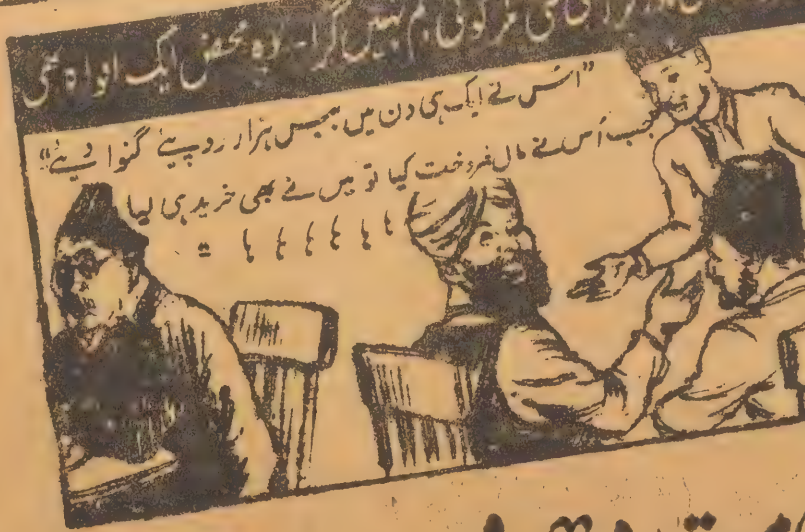 مگر کوئی بم نہیں گرا۔ یہ محض ایک افواہ تھی
”اُس نے ایک ہی دن میں پچیس ہزار روپیئے گنوا دیئے“
جب اُس نے مال فروخت کیا تو میں نے بھی خرید ہی لیا
ہا ہا ہا ہا ہا ہا